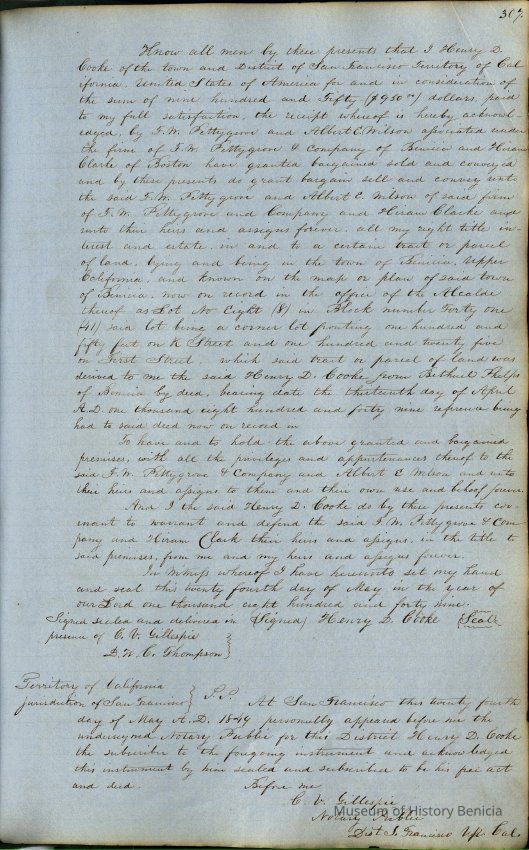 307.
Know all men by these presents that I Henry D.
Cooke of the town and District of San Francisco Territory of Cal
ifornia, United States of America for and in consideration of
the sum of nine hundred and Fifty ($950⁰⁰) dollars, paid
to my full satisfaction, the receipt whereof is hereby acknowl-
edged, by F. W. Pettygrove and Albert E. Wilson associated under
the firm of F. W. Pettygrove & Company of Benicia and Hiram
Clarke of Boston have granted bargained sold and conveyed
and by these presents do grant bargain sell and convey unto
the said F. W. Pettygrove and Albert E. Wilson of said firm
of F. W. Pettygrove and Company and Hiram Clarke and
unto their heirs and assigns forever, all my right title in-
terest and estate, in and to a certain tract or parcel
of land, lying and being in the town of Benicia, Upper
California, and known on the map or plan of said town
of Benicia, now on record in the office of the Alcalde
thereof as Lot No Eight (8) in Block number Forty one
(41) said lot being a corner lot fronting one hundred and
fifty feet on K Street and one hundred and twenty five
on First Street, which said tract or parcel of land was
derived to me the said Henry D. Cooke from Bethuel Phelps
of Benicia by deed, bearing date the thirteenth day of April
A.D. one thousand eight hundred and forty nine reference being
had to said deed now on record in
To have and to hold the above granted and bargained
premises, with all the privileges and appurtenances thereof to the
said F. W. Pettygrove & Company and Albert E Wilson and unto
their heirs and assigns to them and their own use and behoof forever.
And I the said Henry D. Cooke do by these presents cov-
enant to warrant and defend the said F. W. Pettygrove & Com
pany and Hiram Clark their heirs and assigns, in the title to
said premises, from me and my heirs and assigns forever.
In Witness whereof I have hereunto set my hand
and seal this twenty fourth day of May in the year of
our Lord one thousand eight hundred and forty nine.
Signed sealed and delivered in (Signed) Henry D. Cooke (Seal)
presence of C. V. Gillespie
D. W. C. Thompson
Territory of California
jurisdiction of San Francisco } S.S. At San Francisco this twenty fourth
day of May A.D. 1849 personally appeared before me the
undersigned Notary Public for this District Henry D. Cooke
the subscriber to the foregoing instrument and acknowledged
this instrument by him sealed and subscribed to be his free act
and deed. Before me
C. V. Gillespie
Notary Public
Dist S. Francisco Up. Cal.
Museum of History Benicia